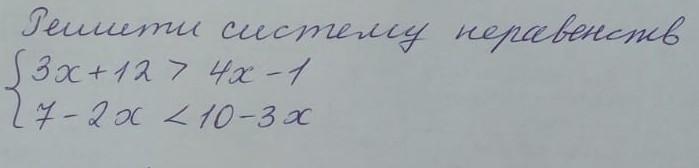 Решити систему неравенств
{ 3x + 12 > 4x - 1
7 - 2x < 10 - 3x